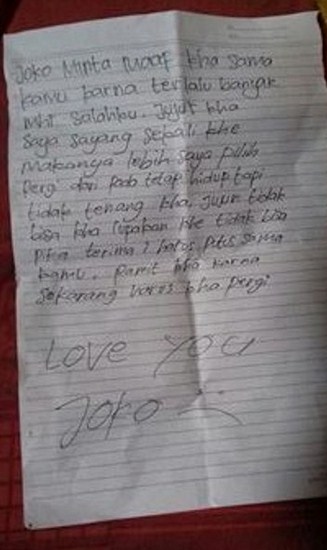 Joko Minta Maaf kha sama
kamu karna terlalu banyak
salahku. Jujut kha
saya sayang sekali khe
makanya lebih saya pilih
pergi dari pada tetap hidup tapi
tidak tenang kha, Jujur tidak
bisa kha lupakan khe tidak bisa
terima putus sama
kamu. Pamit kha karna
sekarang harus kha pergi
Love You
Joko